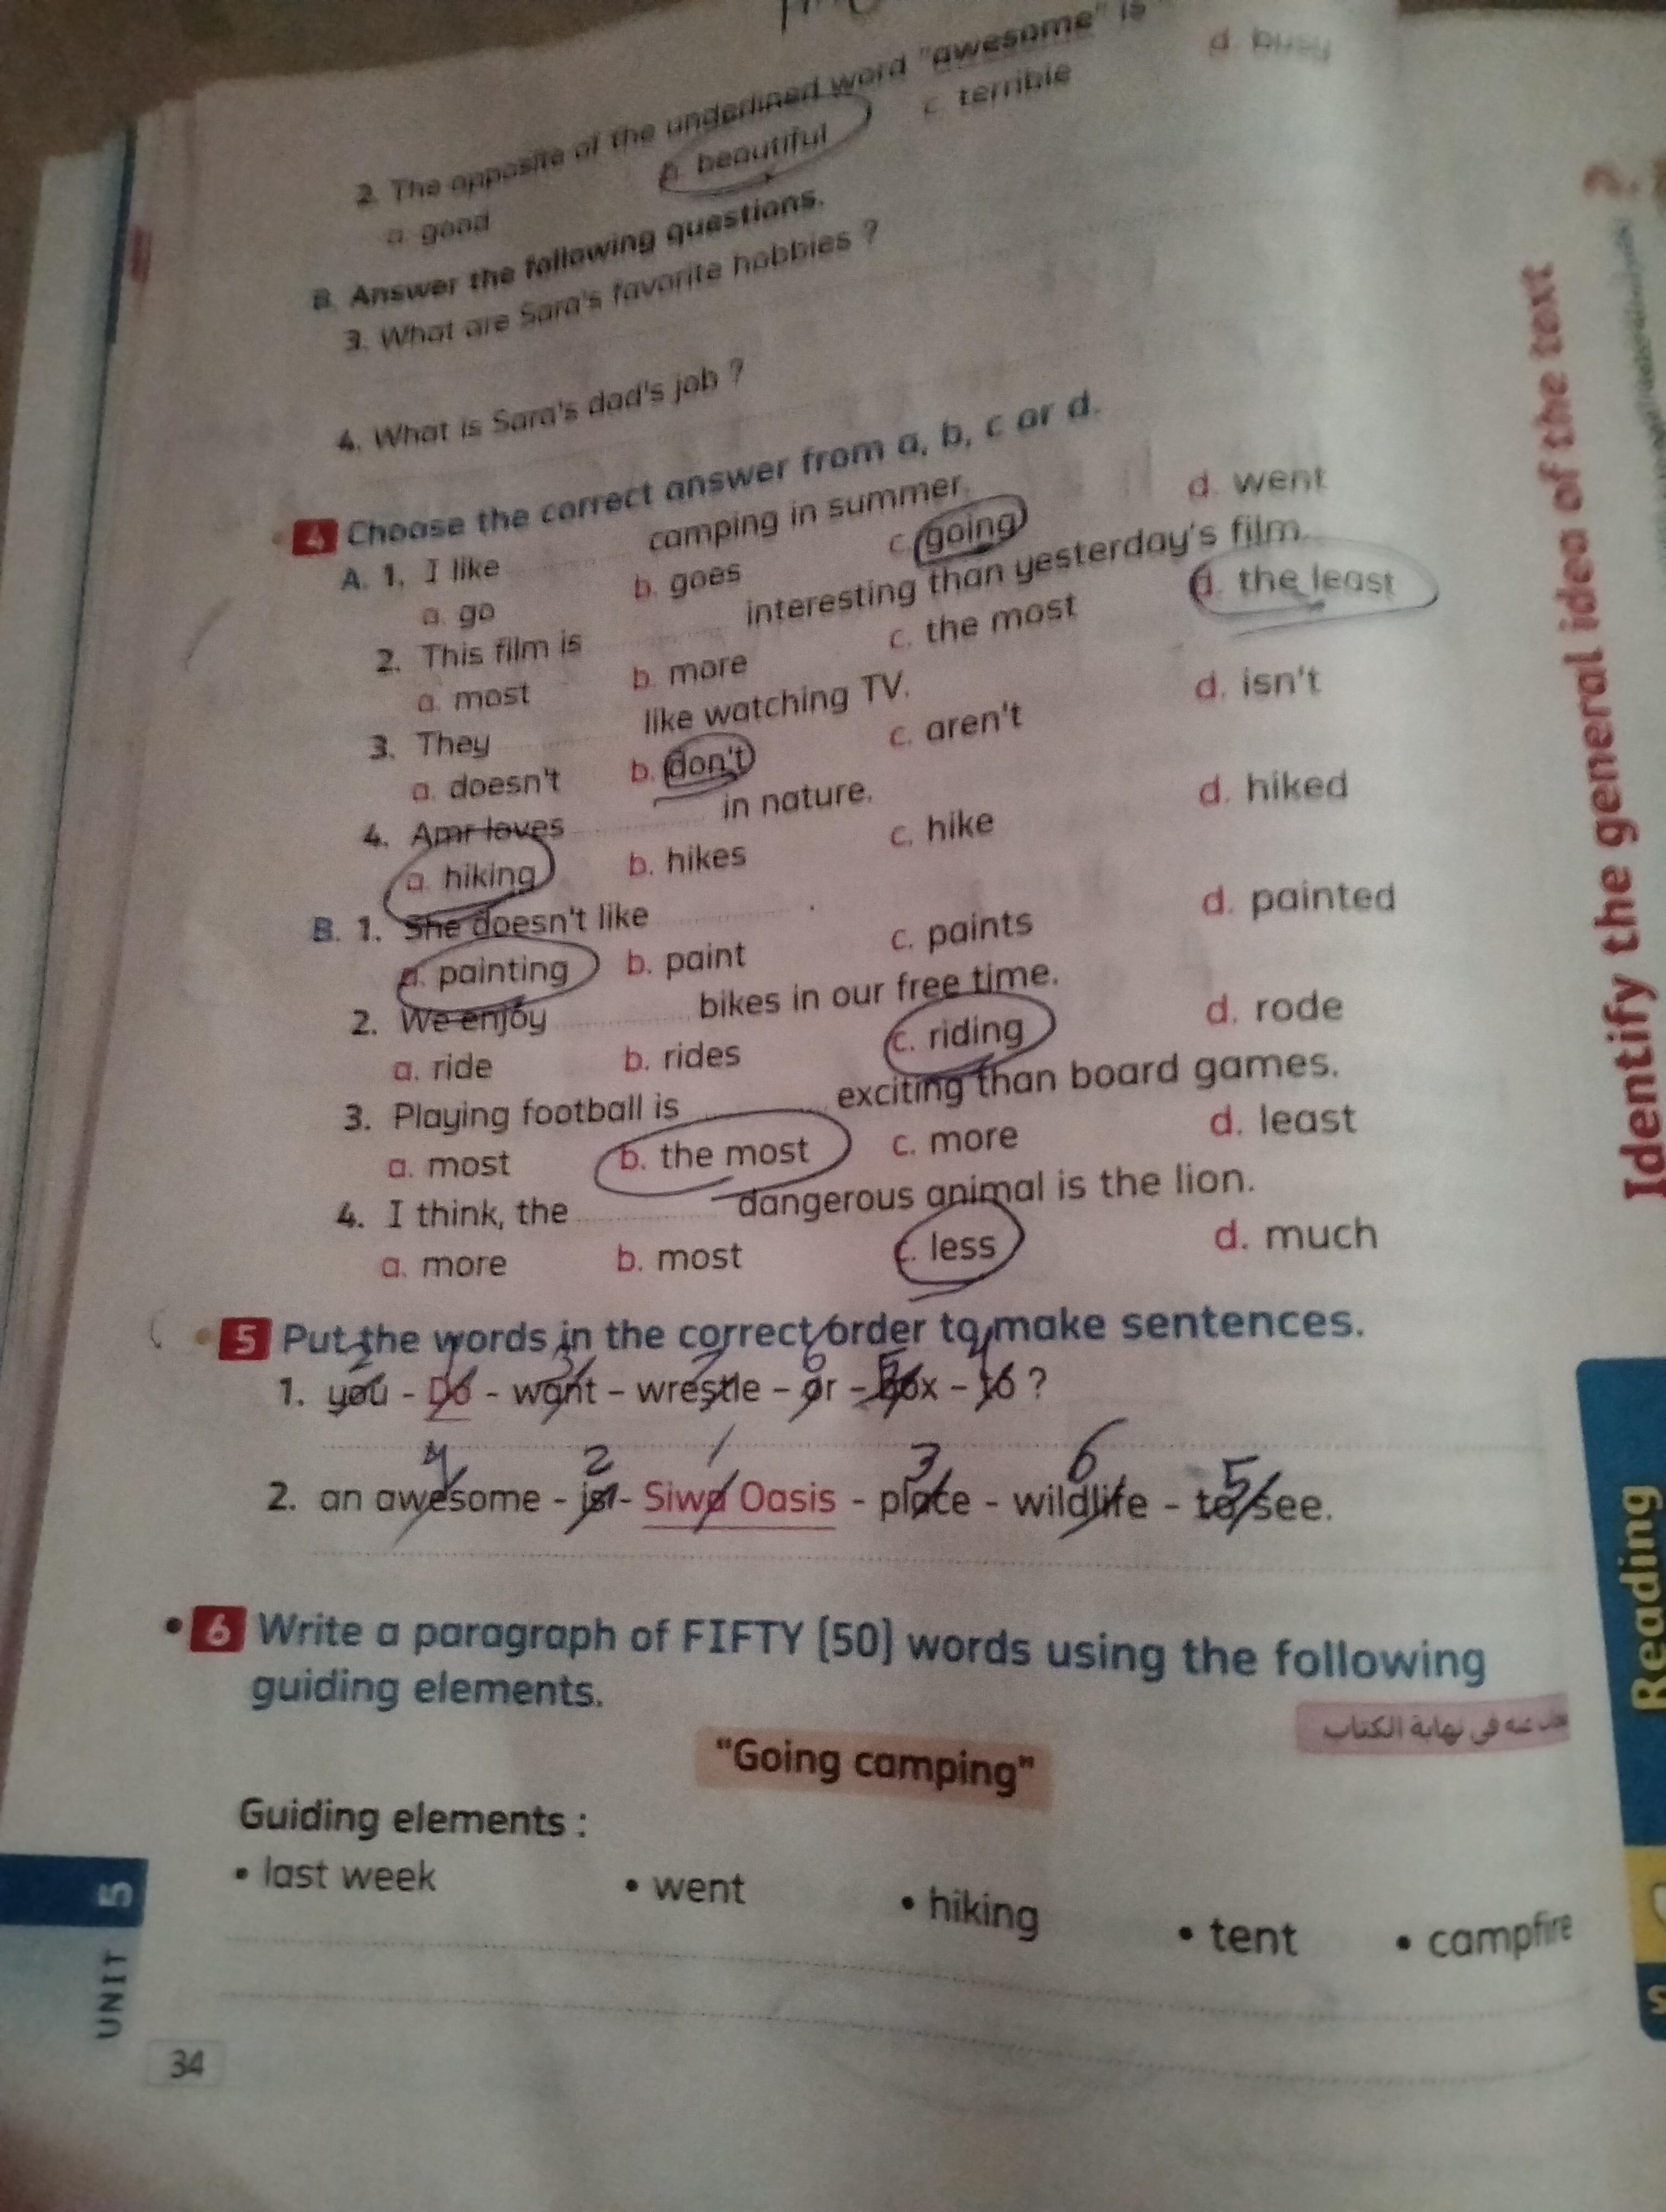 2. The opposite of the underlined word "awesome" is
a. good b. beautiful c. terrible d. busy
B. Answer the following questions.
3. What are Sara's favorite hobbies ?
4. What is Sara's dad's job ?
4 Choose the correct answer from a, b, c or d.
A. 1. I like camping in summer.
a. go b. goes c. going d. went
2. This film is interesting than yesterday's film.
a. most b. more c. the most d. the least
3. They like watching TV.
a. doesn't b. don't c. aren't d. isn't
4. Amr loves in nature.
a. hiking b. hikes c. hike d. hiked
B. 1. She doesn't like
a. painting b. paint c. paints d. painted
2. We enjoy bikes in our free time.
a. ride b. rides c. riding d. rode
3. Playing football is exciting than board games.
a. most b. the most c. more d. least
4. I think, the dangerous animal is the lion.
a. more b. most c. less d. much
5 Put the words in the correct order to make sentences.
2 1 3 7 6 5 4
1. you - Do - want - wrestle - or - box - to ?
4 2 1 3 6 5
2. an awesome - is - Siwa Oasis - place - wildlife - to see.
6 Write a paragraph of FIFTY (50) words using the following
guiding elements.
عنه فى نهاية الكتاب
"Going camping"
Guiding elements :
• last week • went • hiking • tent • campfire
UNIT 5
34
Identify the general idea of the text
Reading